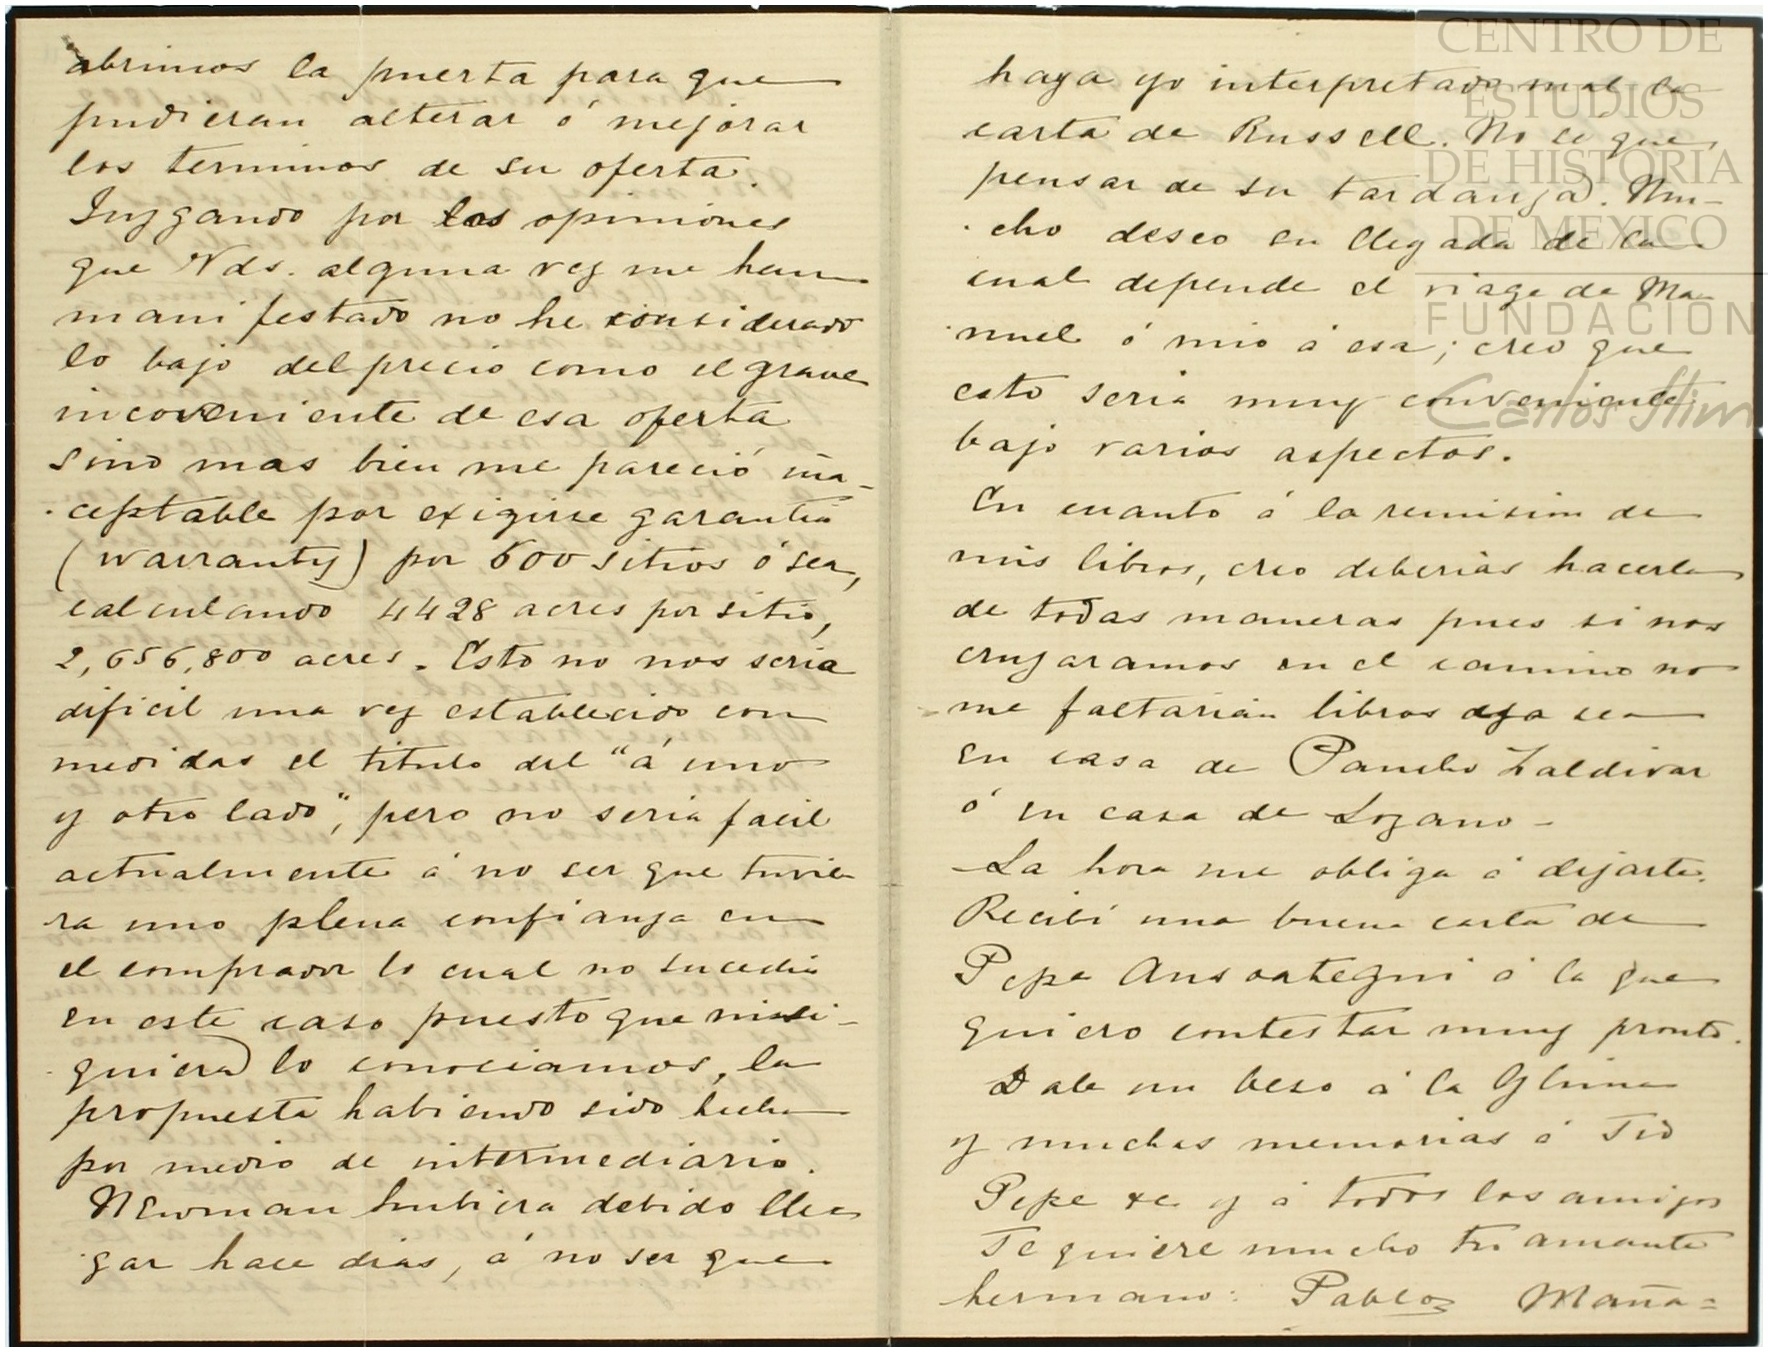 abrimos la puerta para que
pudieran alterar ó mejorar
los terminos de su oferta.
Juzgando por las opiniones
que Vds. alguna vez me han
manifestado no he considerado
lo bajo del precio como el grave
incoveniente de esa oferta
sino mas bien me pareció ina-
ceptable por exigirse garantia
(warranty) por 600 sitios ó sea,
calculando 4428 acres por sitio,
2,656,800 acres. Esto no nos seria
dificil una vez establecido con
medidas el titulo del "á uno
y otro lado", pero no seria facil
actualmente á no ser que tuvie
ra uno plena confianza en
el comprador lo cual no sucedia
en este caso puesto que nisi-
quiera lo conociamos, la
propuesta habiendo sido hecha
por medio de intermediario.
Newman hubiera debido lle
gar hace dias, á no ser que
haya yo interpretado mal la
carta de Russell. No sé que
pensar de su tardanza. Mu-
cho deseo su llegada de la
cual depende el viage de Ma-
nuel ó mio á esa; creo que
esto seria muy conveniente
bajo varios aspectos.
En cuanto á la remision de
mis libros, creo deberias hacerla
de todas maneras pues si nos
cruzaramos en el camino no
me faltarian libros ya sea
en casa de Pancho Zaldivar
ó en casa de Lozano -
La hora me obliga á dejarte.
Recibí una buena carta de
Pepe Ansoategui á la que
quiero contestar muy pronto.
Dale un beso á la
y muchas memorias á Tio
Pepe &c y á todos los amigos
Te quiere mucho tu amante
hermano: Pablo Maña=
CENTRO DE
ESTUDIOS
DE HISTORIA
DE MEXICO
FUNDACIÓN
Carlos Slim